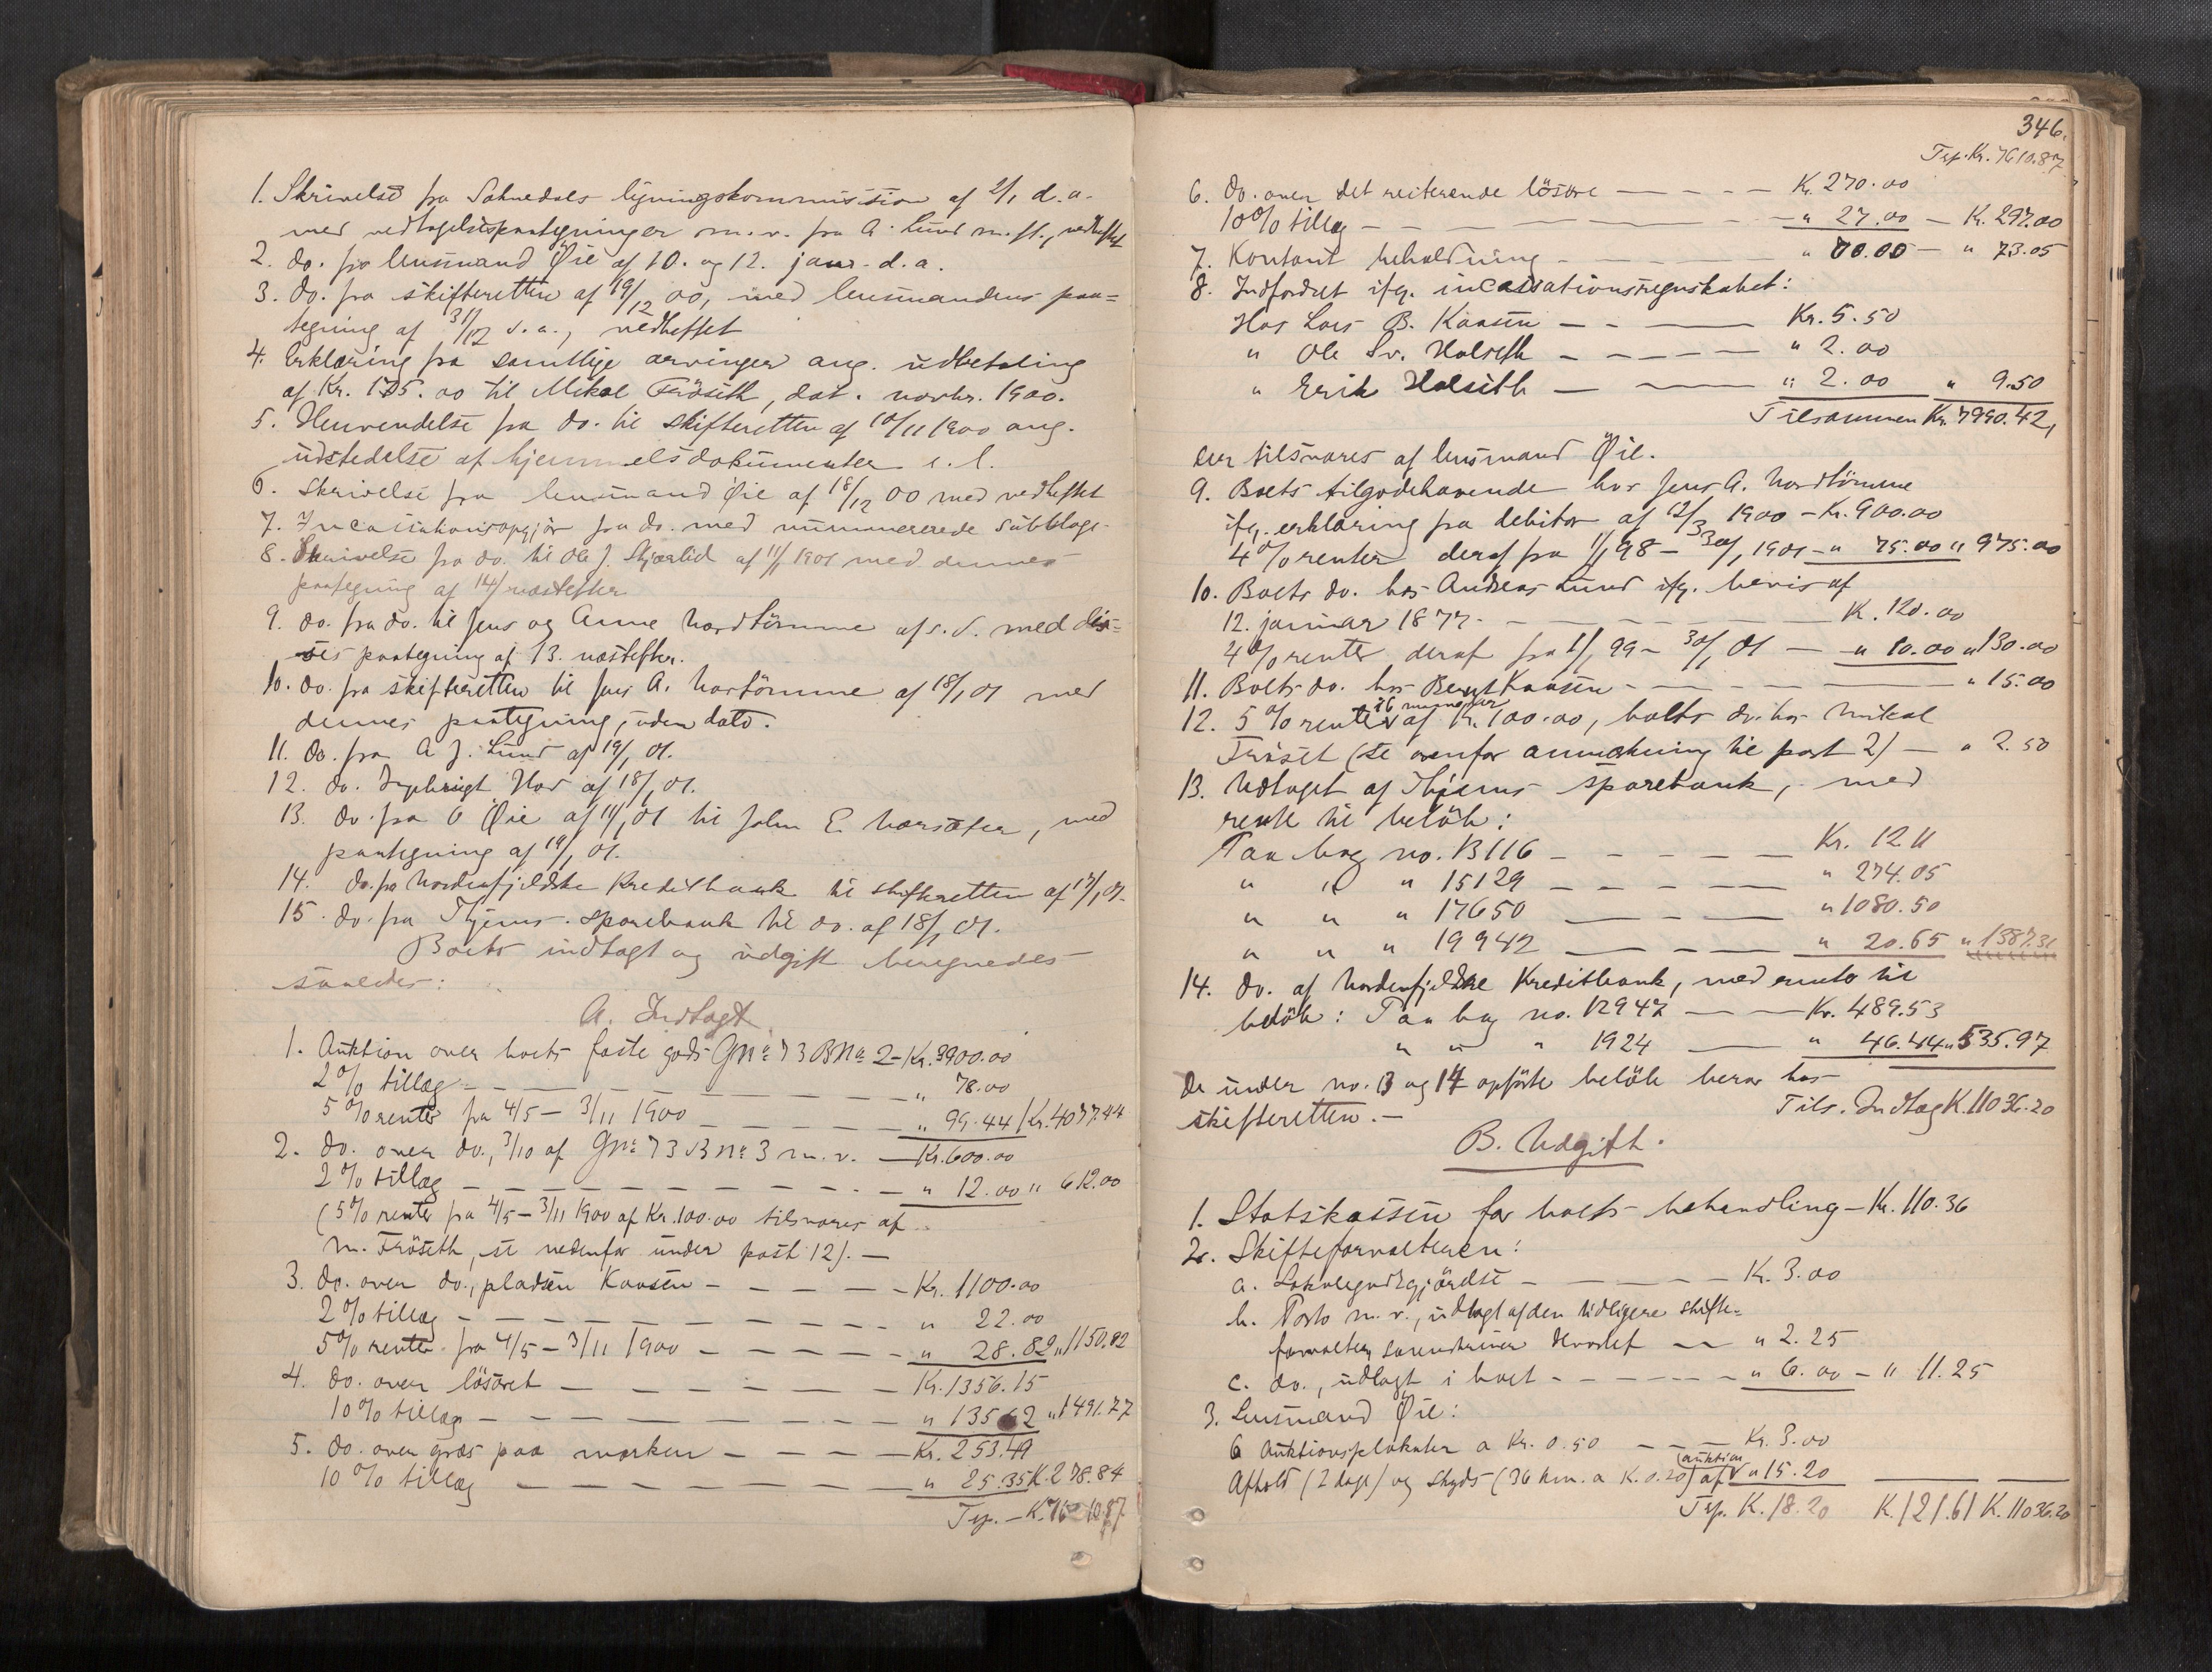 1. Skrivelse fra Soknedals ligningskommission af 2/1 d.a.
med vedtagelsespaategninger m.v. fra A. Lund m.fl., vedheftet
2. do. fra lensmand Øie af 10. og 12. janr. d.a.
3. do. fra skifteretten af 19/12 00, med lensmandens paa=
tegning af 31/12 s.a., vedheftet
4. Erklæring fra samtlige arvinger ang. udbetaling
af Kr. 175.00 til Mikal Fröseth, dat. novbr. 1900.
5. Henvendelse fra do. til skifteretten af 10/11 1900 ang.
udstedelse af hjemmelsdokumenter e.l.
6. Skrivelse fra lensmand Øie af 18/12 00 med vedheftet
7. Incassationsopgjör fra do. med nummererede subbilage
8. Skrivelse fra do. til Ole J. Skjærlid af 11/1 1901 med dennes
paategning af 14/ næstefter
9. do. fra do. til Jens og Anne Nordtömme af s.d. med dis=
ses paategning af 13. næstefter.
10. do. fra skifteretten til Jens A. Nortömme af 18/1 01 med
dennes paategning, uden dato.
11. do. fra A. J. Lund af 19/1 01.
12. do. Ingebrigt Hov af 18/1 01.
13. do. fra O Øie af 11/1 01 til John E. , med
paategning af 19/1 01.
14. do. fra Nordenfjeldske Kreditbank til skifteretten af 17/1 01.
15. do. fra Thjems. Sparebank til do. af 18/1 01.
Boets indtægt og udgift beregnedes
saaledes:
A. Indtægt
1. Auktion over boets faste gods GNo 73 BNo 2 - Kr. 3900.00
2% tillæg - - - - - " 78.00
5% renter fra 4/5 - 3/11 1900 - - - - " 99.44 / Kr. 4077.44
2. do. over do., 3/10 af GNo 73 BNo 3 m.v. - Kr. 600.00
2% tillæg - - - - - - " 12.00 " 612.00
(5% renter fra 4/5 - 3/11 1900 af Kr. 100.00 tilsvares af
M. Fröseth, se nedenfor under post 12). -
3. do. over do., pladsen Kaasen - - - - Kr. 1100.00
2% tillæg - - - - - - " 22.00
5% renter fra 4/5 - 3/11 1900 - - - - " 28.82 " 1150.82
4. do. over lösöret - - - - - Kr. 1356.15
10% tillæg - - - - - - " 135.62 " 1491.77
5. do. over græs paa marken - - - - Kr. 253.49
10% tillæg - - - - - - " 25.35 K. 278.84
Tsp. - K. 7610.87
346.
Tsp. Kr. 7610.87
6. do. over det resterende lösöre - - - - Kr. 270.00
10% tillæg - - - - - - " 27.00 - K. 297.00
7. Kontant beholdning - - - - " 70.05 - " 73.05
8. Indfordret ifg. incassationsregnskabet:
Hos Lars B. Kaasen - - - Kr. 5.50
" Ole Sv. Halseth - - - - " 2.00
" Erik Halseth - - " 2.00 " 9.50
Tilsammen Kr. 7990.42,
der tilsvares af lensmand Øie.
9. Boets tilgodehavende hos Jens A. Nordtömme
ifg. erklæring fra debitor af 12/3 1900 - Kr. 900.00
4% renter deraf fra 1/1 98 - 30/1 1901 - " 75.00 " 975.00
10. Boets do. hos Andreas Lund ifg. bevis af
12. januar 1877. - - - - K. 120.00
4% renter deraf fra 1/1 99 - 30/1 01 - " 10.00 " 130.00
11. Boets do. hos Bengt Kaasen - - - - " 15.00
i 6 maaneder
12. 5% renter v af Kr. 100.00, boets do. hos Mikal
Fröset (se ovenfor anmerkning til post 2) - " 2.50
13. Udtaget af Thjems sparebank, med
rente til belöb:
Paa bog no. 13116 - - - - Kr. 12.11
" " " 15129 - - - - " 274.05
" " " 17650 - - - " 1080.50
" " " 19942 - - - " 20.65 " 1387.31
14. do. af Nordenfjeldske Kreditbank, med rente til
belöb: Paa bog no. 12947 - - Kr. 489.53
" " " 1924 - " 46.44 " 535.97
De under no. 13 og 14 opförte belöb beror hos
skifteretten. -
Tils. Indtæg K. 11036.20
B. Udgift.
1. Statskassen for boets behandling - Kr. 110.36
2. Skifteforvalteren:
a. Lokalegodtgjörelse - - - - K. 3.00
b. Porto m.v., udlagt af den tidligere skifte=
forvalter, sorenskriver - - " 2.25
c. do., udlagt i boet - - - - " 6.00 - " 11.25
3. Lensmand Øie:
6 auktionsplakater a Kr. 0.50 - - - Kr. 3.00
(auktion
Afhold (2 dage) og skyds (36 km. a K. 0.20) af v " 15.20
Tsp. K. 18.20 K. 121.61 K. 11036.20